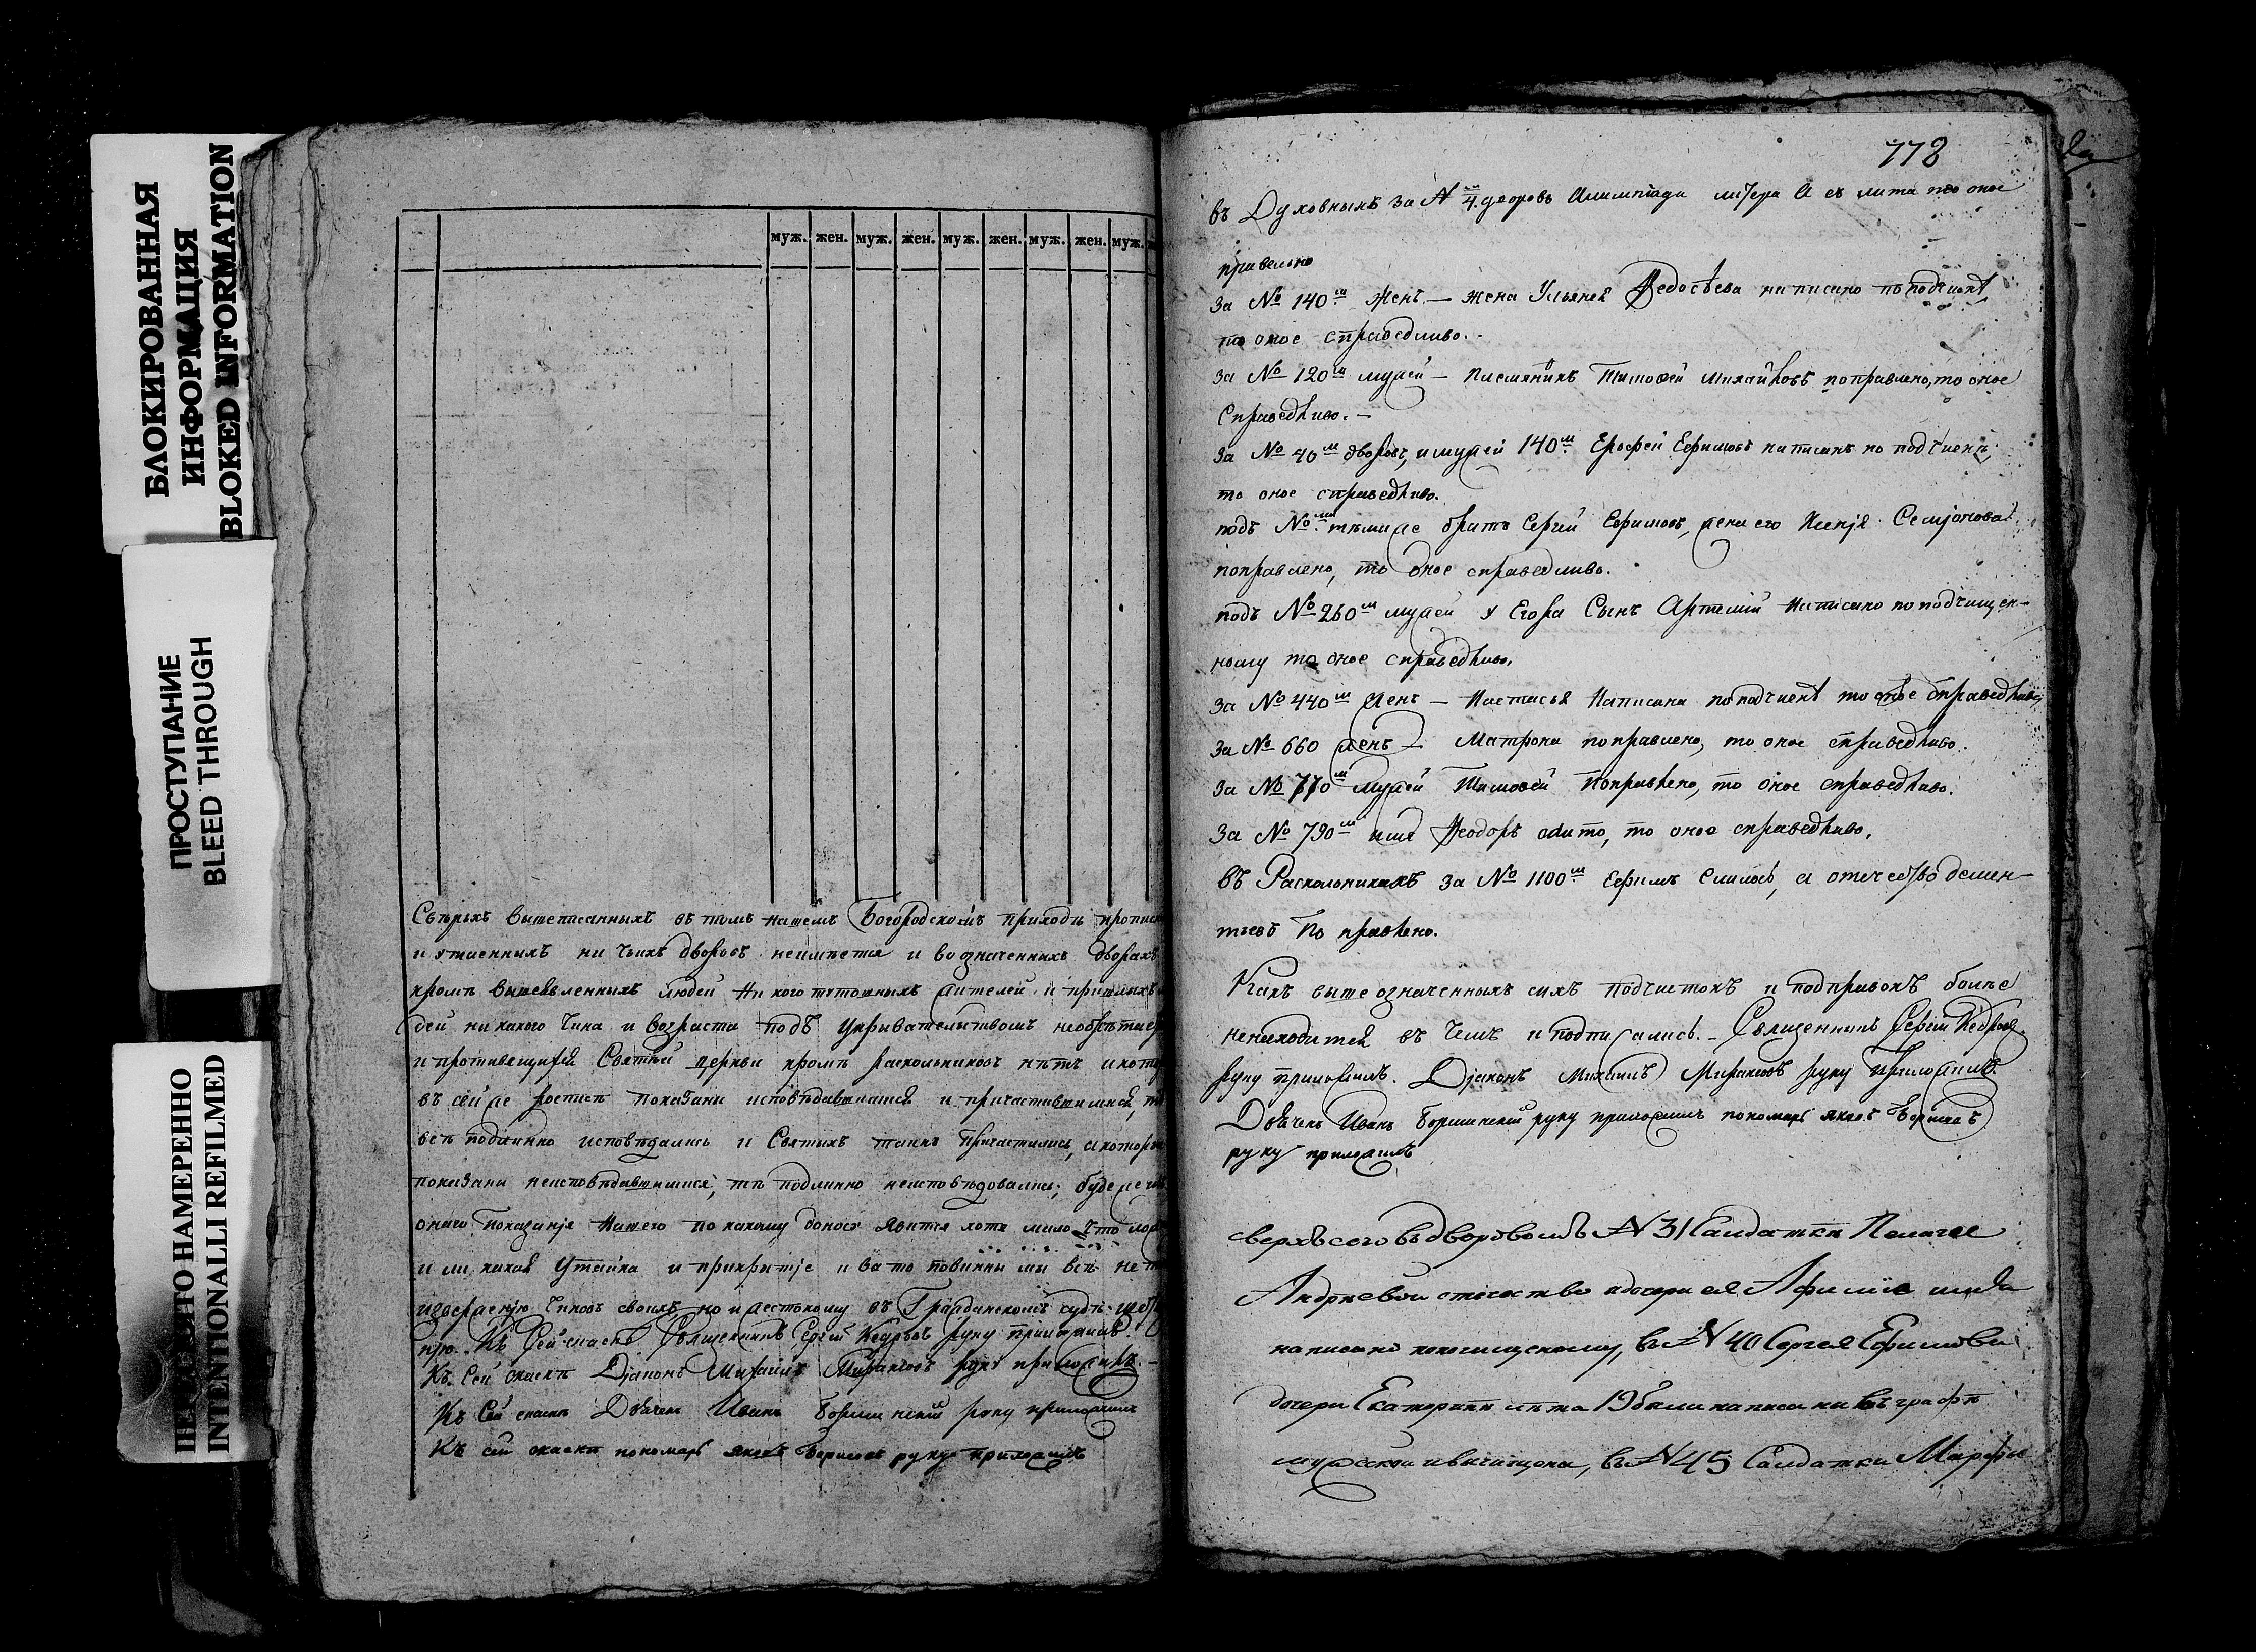 БЛОКИРОВАННАЯ
ИНФОРМАЦИЯ
BLOKED INFORMATION
ПРОСТУПАНИЕ
BLEED THROUGH
НАМЕРЕННО
INTENTIONALLI REFILMED
муж. жен. муж. жен. муж. жен. муж. жен. муж.
вышеписанныхъ въ томъ нашемъ Богородскомъ приходѣ
и утаенныхъ ни чьихъ дворовъ неимѣется и во означенныхъ дворахъ
кромѣ людей ни кого
ни какого чина и возраста подъ укривателствомъ
и противящихся Святѣй церкви кромѣ раскольниковъ нѣтъ
въ сей же росписѣ показаны исповѣдавшимися и причастившимися,
всѣ подлинно исповѣдались и Святыхъ таинъ причастились, а
показаны неисповѣдавшимися, тѣ подлинно неисповѣдовались; буде же
онаго показанія нашего по какому доносу явится хотя мало что
и ли какая утайка и прикрытіе и за то повинны мы всѣ не
чиновъ своихъ но и жестокому въ Гражданскомъ судѣ
Къ Сей скаскѣ Священникъ Сергій Кедровъ руку приложилъ.
Къ Сей скаскѣ Діаконъ Михаилъ руку приложилъ. –
Къ Сей скаскѣ Дьячекъ Иванъ руку приложилъ
Къ сей скаскѣ пономарь яковъ Борисовъ руку приложилъ
778
въ Духовныхъ за N 4 дворовъ литера
правельно
За № 140м жен. – жена Ульяна Федосѣева написано по подчищкѣ,
то оное справедливо.
За № 120м мужей – племяникъ Тимофей поправлено, то оное
Справедливо. –
За № 40м дворовъ, и мужей 140м Ерофей Ефимовъ написанъ по подчискѣ,
то оное справедливо.
подъ № тѣмиже братъ Сергѣй Ефимовъ, жена его Семіонова
поправлено, то оное справедливо.
подъ № 260м мужей у Егора Сынъ Артемій написано по подчищен–
ному то оное справедливо.
За № 440м жен – Настасья написана по подчискѣ то оное справедливо
За № 660 жен – Матрона поправлено, то оное справедливо.
За № 770м мужей Тимофей поправлено, то оное справедливо.
За № 790м имя Феодоръ то оное справедливо.
въ Раскольникахъ за № 1100м Ефимъ а отечество демен–
тьевъ по правлено.
Какъ выше означенныхъ сихъ подчистокъ и подправокъ болѣе
ненаходится въ чемъ и подписались. – Священникъ Сергій Кедровъ
руку приложилъ. Діаконъ Михаилъ руку приложилъ.
Дьячекъ Иванъ руку приложилъ пономарь яковъ Борисовъ
руку приложилъ
сверхъ сего въ дворовомъ N 31 Салдатки Пелагеи
Андреевой отечество и дочери ея имя
написано въ N 40 Сергея Ефимова
дочери Екатерины лѣта 19 были написаны въ графѣ
мужской и вычищена, въ N 45 Салдатки Марфы